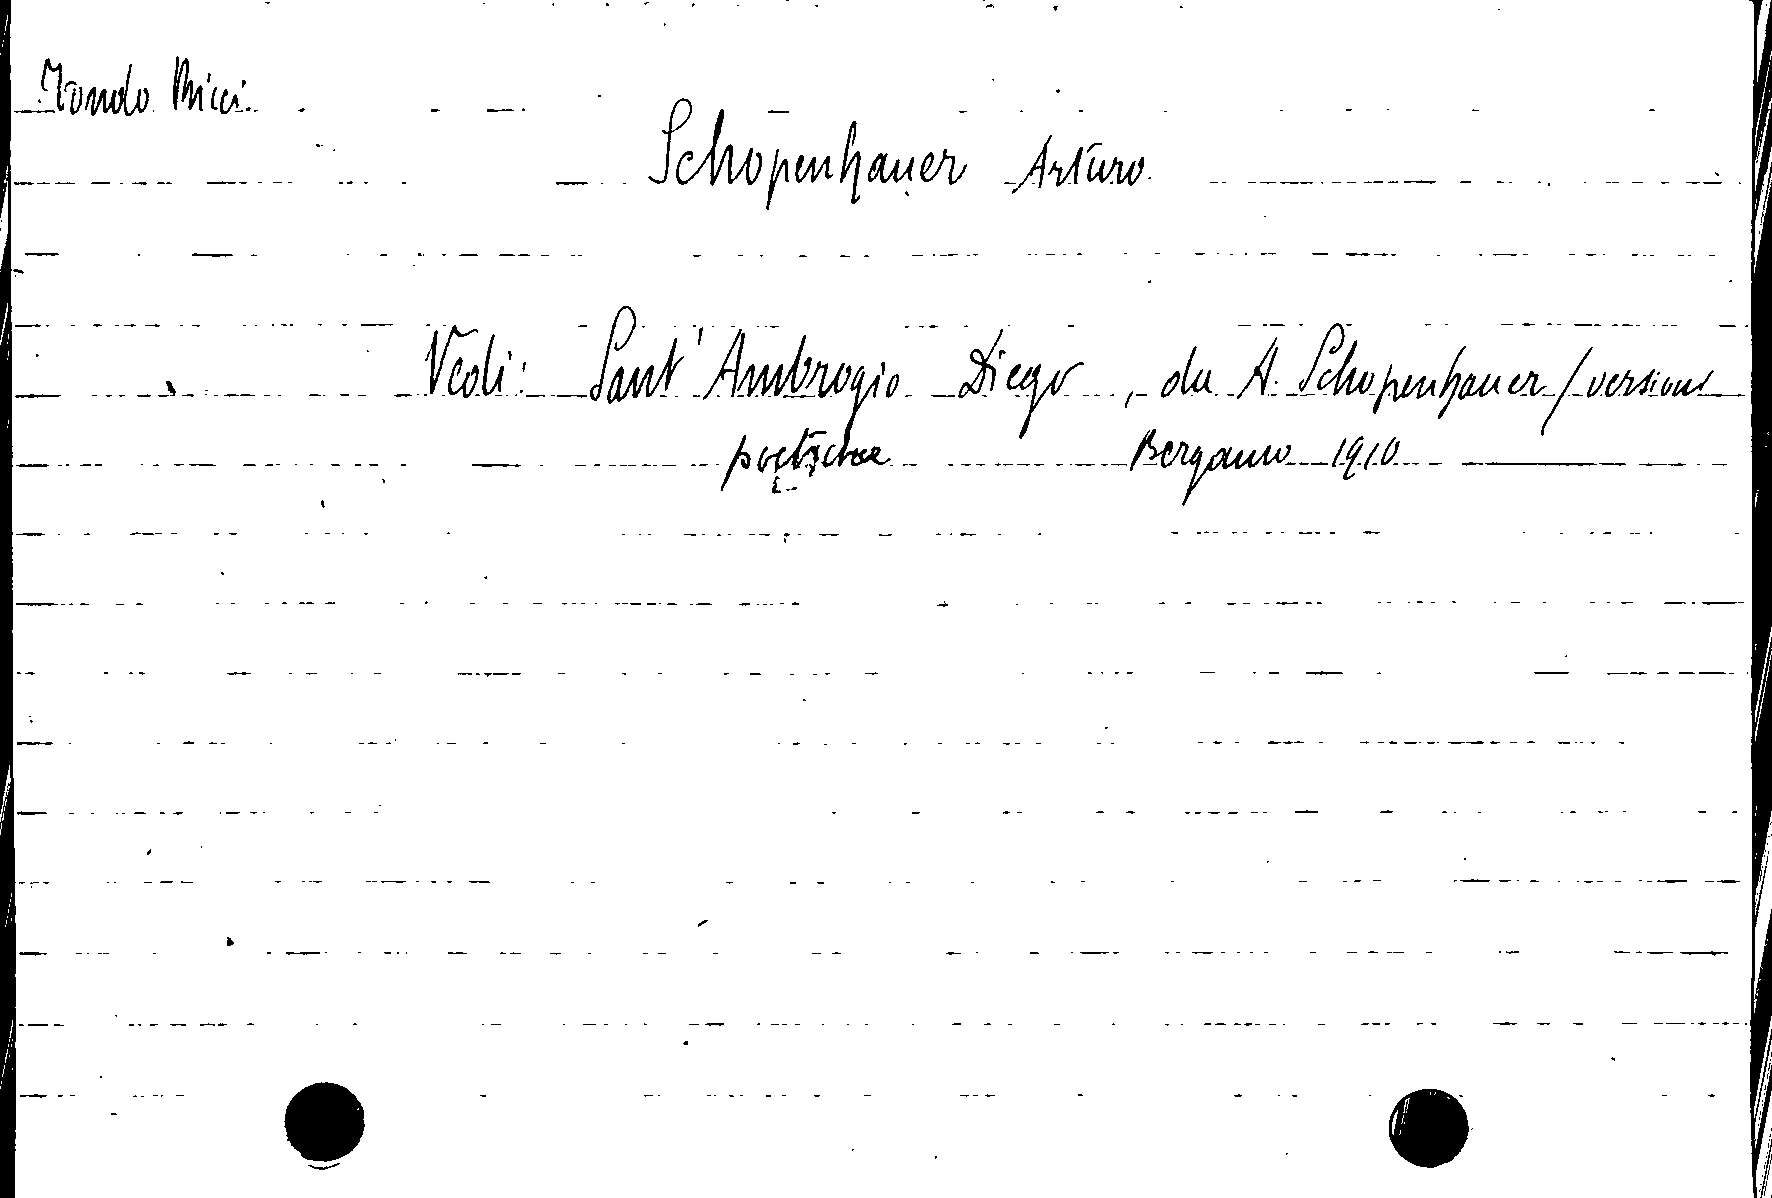 Fondo Ricci
Schopenhauer Arturo
Vedi: Sant'Ambrogio Diego, da A. Schopenhauer / versioni
poetiche Bergamo 1910